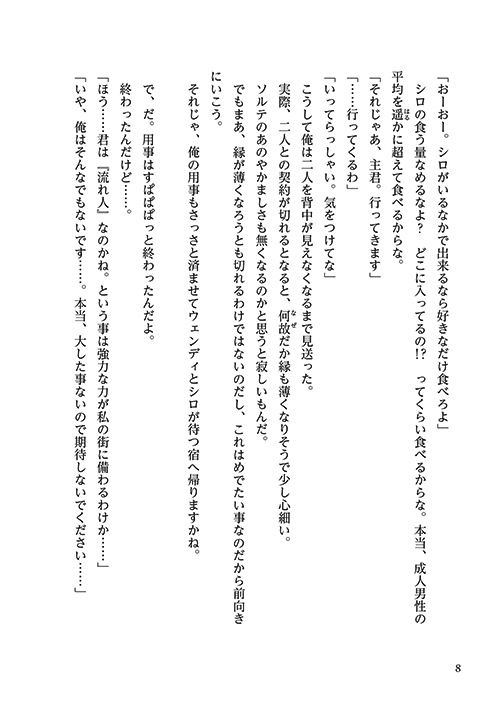 「おーおー。シロがいるなかで出来るなら好きなだけ食べろよ」
シロの食う量なめるなよ？　どこに入ってるの!?　ってくらい食べるからな。本当、成人男性の
平均を遥かに超えて食べるからな。
「それじゃあ、主君。行ってきます」
「……行ってくるわ」
「いってらっしゃい。気をつけてな」
こうして俺は二人を背中が見えなくなるまで見送った。
実際、二人との契約が切れるとなると、何故だか縁も薄くなりそうで少し心細い。
ソルテのあのやかましさも無くなるのかと思うと寂しいもんだ。
でもまあ、縁が薄くなろうとも切れるわけではないのだし、これはめでたい事なのだから前向き
にいこう。
それじゃ、俺の用事もさっさと済ませてウェンディとシロが待つ宿へ帰りますかね。
で、だ。用事はすぱぱぱっと終わったんだよ。
終わったんだけど……。
「ほう……君は『流れ人』なのかね。という事は強力な力が私の街に備わるわけか……」
「いや、俺はそんなでもないです……。本当、大した事ないので期待しないでください……」
8